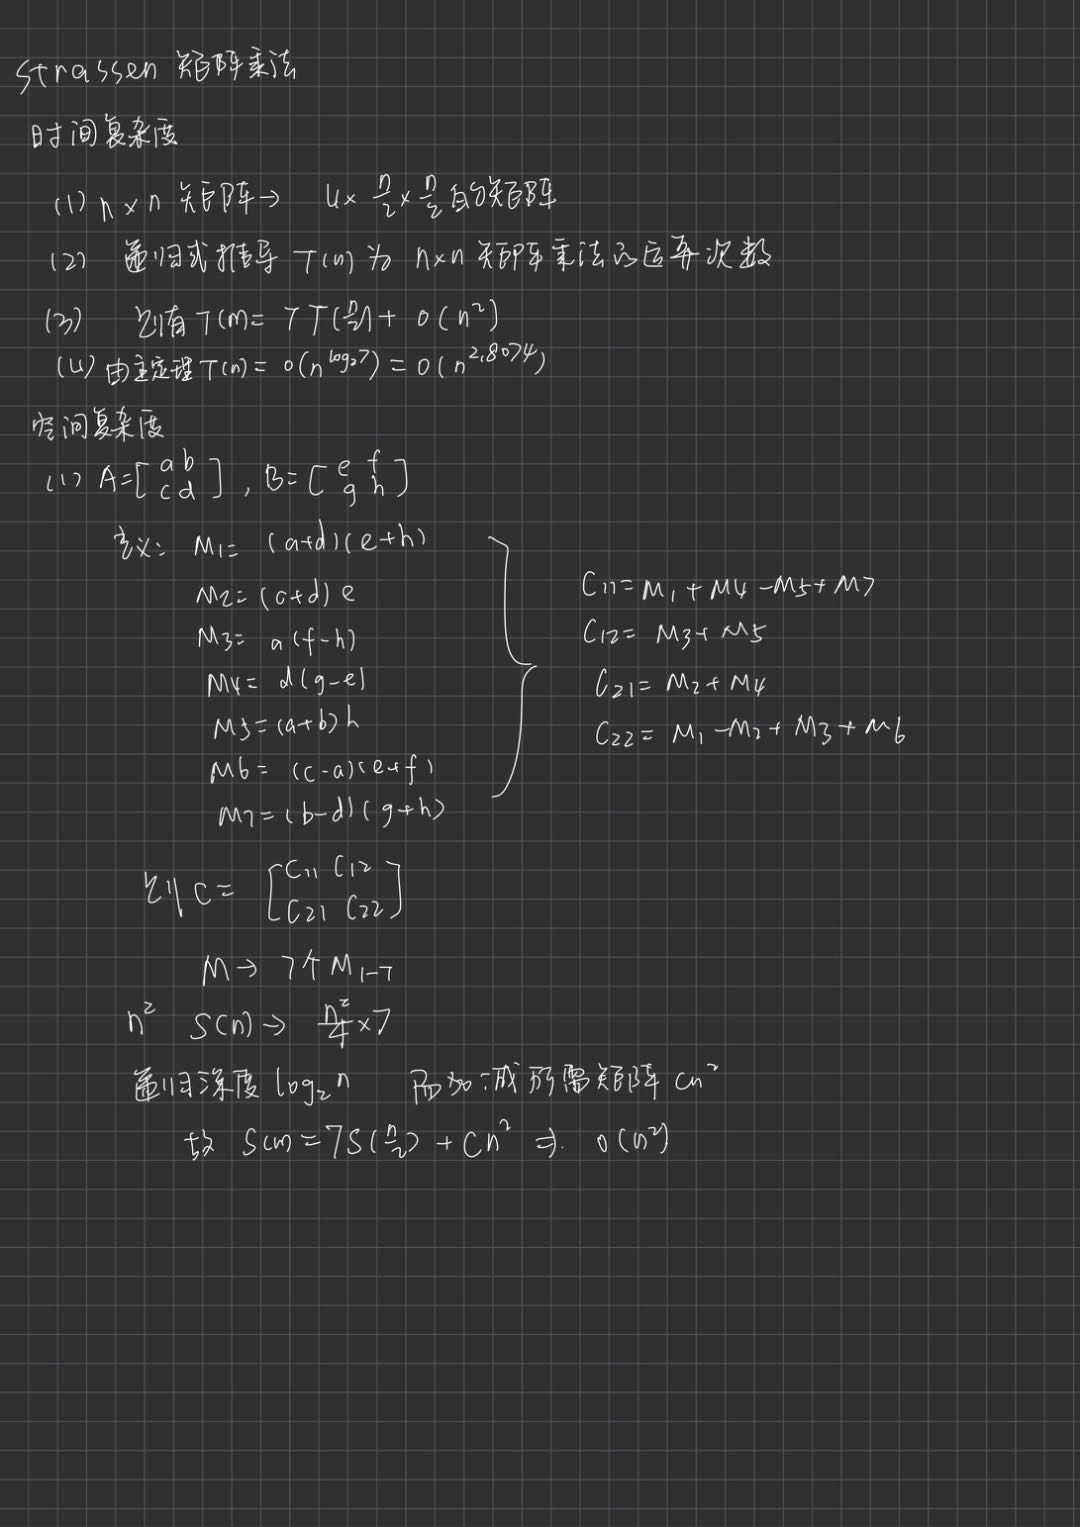 Strassen 矩阵乘法
时间复杂度
(1) n×n 矩阵→ 4×n/2×n/2的矩阵
(2) 递归式推导 T(n) 为 n×n 矩阵乘法的运算次数
(3) 则有 T(n)= 7T(n/2)+ O(n²)
(4) 由主定理 T(n)= O(n^log₂7) = O(n^2.8074)
空间复杂度
(1) A=[a b c d], B=[e f g h]
定义: M1= (a+d)(e+h)
M2=(c+d)e
M3= a(f-h)
M4= d(g-e)
M5=(a+b)h
M6= (c-a)(e+f)
M7=(b-d)(g+h)
C11=M1+M4-M5+M7
C12= M3+M5
C21= M2+M4
C22= M1-M2+M3+M6
则 C= [C11 C12
C21 C22]
M→ 7个M1-7
n² S(n)→ n²/4×7
递归深度 log₂n 而加减所需矩阵 cn²
故 S(n)=7S(n/2)+Cn² ⇒. O(n²)